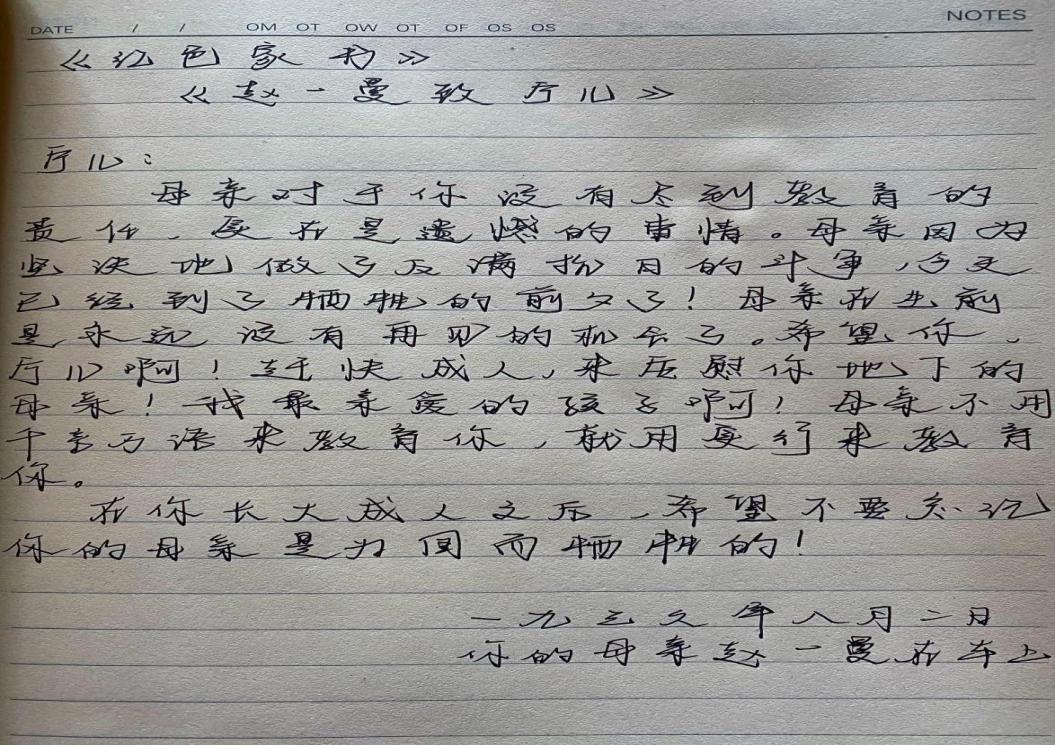 DATE / / OM OT OW OT OF OS OS NOTES
《红色家书》
《赵一曼致宁儿》
宁儿:
母亲对于你没有尽到教育的
责任、实在是遗憾的事情。母亲因为
坚决地做了反满抗日的斗争,今天
已经到了牺牲的前夕了!母亲在生前
是永远没有再见的机会了。希望你,
宁儿啊!赶快成人,来安慰你地下的
母亲!我最亲爱的孩子啊!母亲不用
千言万语来教育你,就用实行来教育
你。
在你长大成人之后,希望不要忘记
你的母亲是为国而牺牲的!
一九三六年八月二日
你的母亲赵一曼在车上